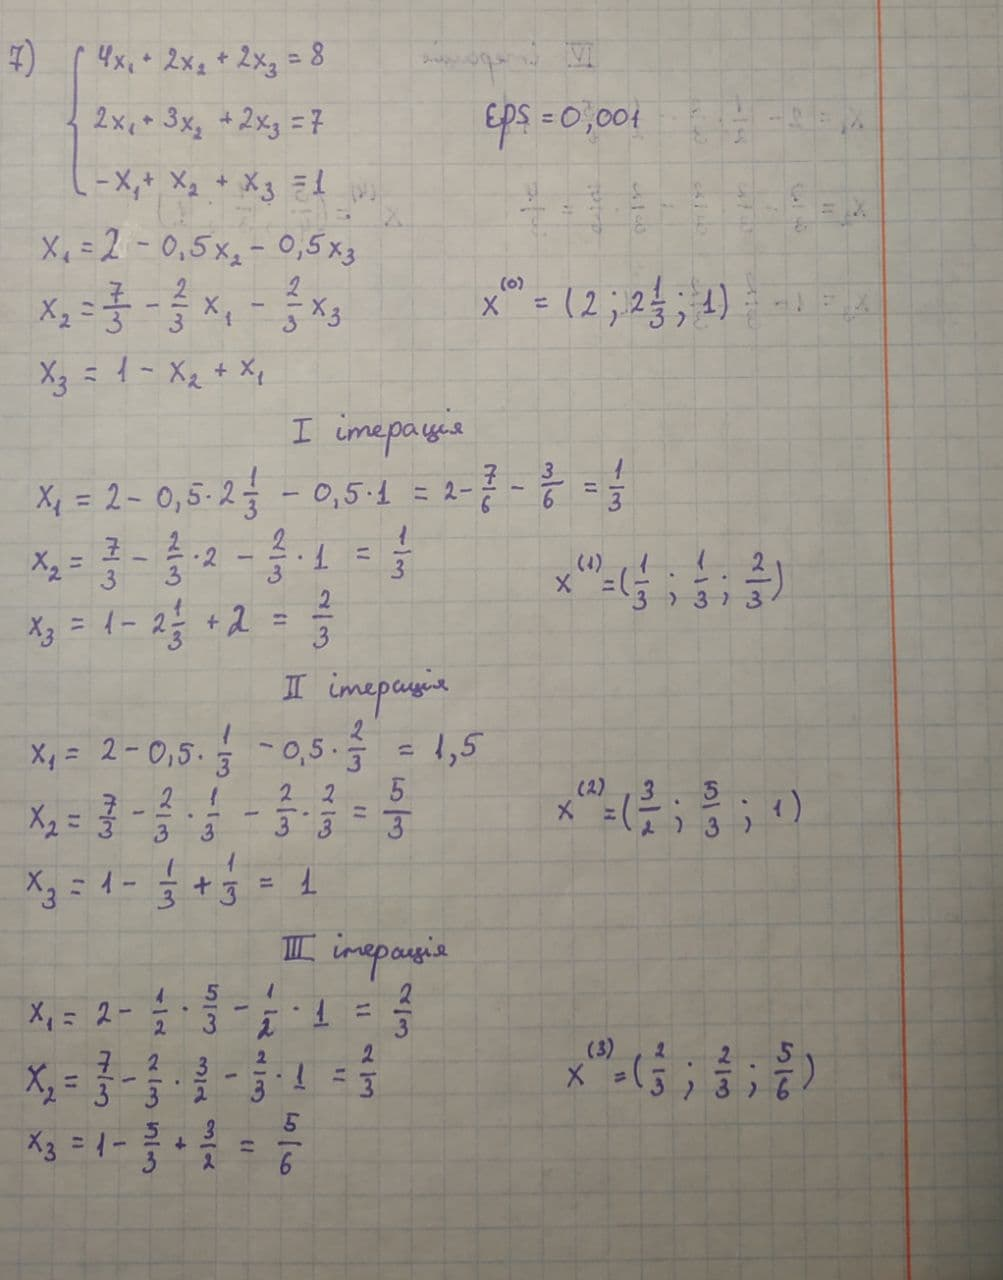 7) 4x₁ + 2x₂ + 2x₃ = 8
2x₁ + 3x₂ + 2x₃ = 7 Eps = 0,001
-x₁ + x₂ + x₃ = 1
x₁ = 2 - 0,5x₂ - 0,5x₃
x₂ = 7/3 - 2/3 x₁ - 2/3 x₃ x⁽⁰⁾ = (2 ; 2 1/3 ; 1)
x₃ = 1 - x₂ + x₁
I ітерація
x₁ = 2 - 0,5·2 1/3 - 0,5·1 = 2 - 7/6 - 3/6 = 1/3
x₂ = 7/3 - 2/3 · 2 - 2/3 · 1 = 1/3
x⁽¹⁾ = (1/3 ; 1/3 ; 2/3)
x₃ = 1 - 2 1/3 + 2 = 2/3
II ітерація
x₁ = 2 - 0,5 · 1/3 - 0,5 · 2/3 = 1,5
x₂ = 7/3 - 2/3 · 1/3 - 2/3 · 2/3 = 5/3 x⁽²⁾ = (3/2 ; 5/3 ; 1)
x₃ = 1 - 1/3 + 1/3 = 1
III ітерація
x₁ = 2 - 1/2 · 5/3 - 1/2 · 1 = 2/3
x₂ = 7/3 - 2/3 · 3/2 - 2/3 · 1 = 2/3 x⁽³⁾ = (2/3 ; 2/3 ; 5/6)
x₃ = 1 - 5/3 + 3/2 = 5/6